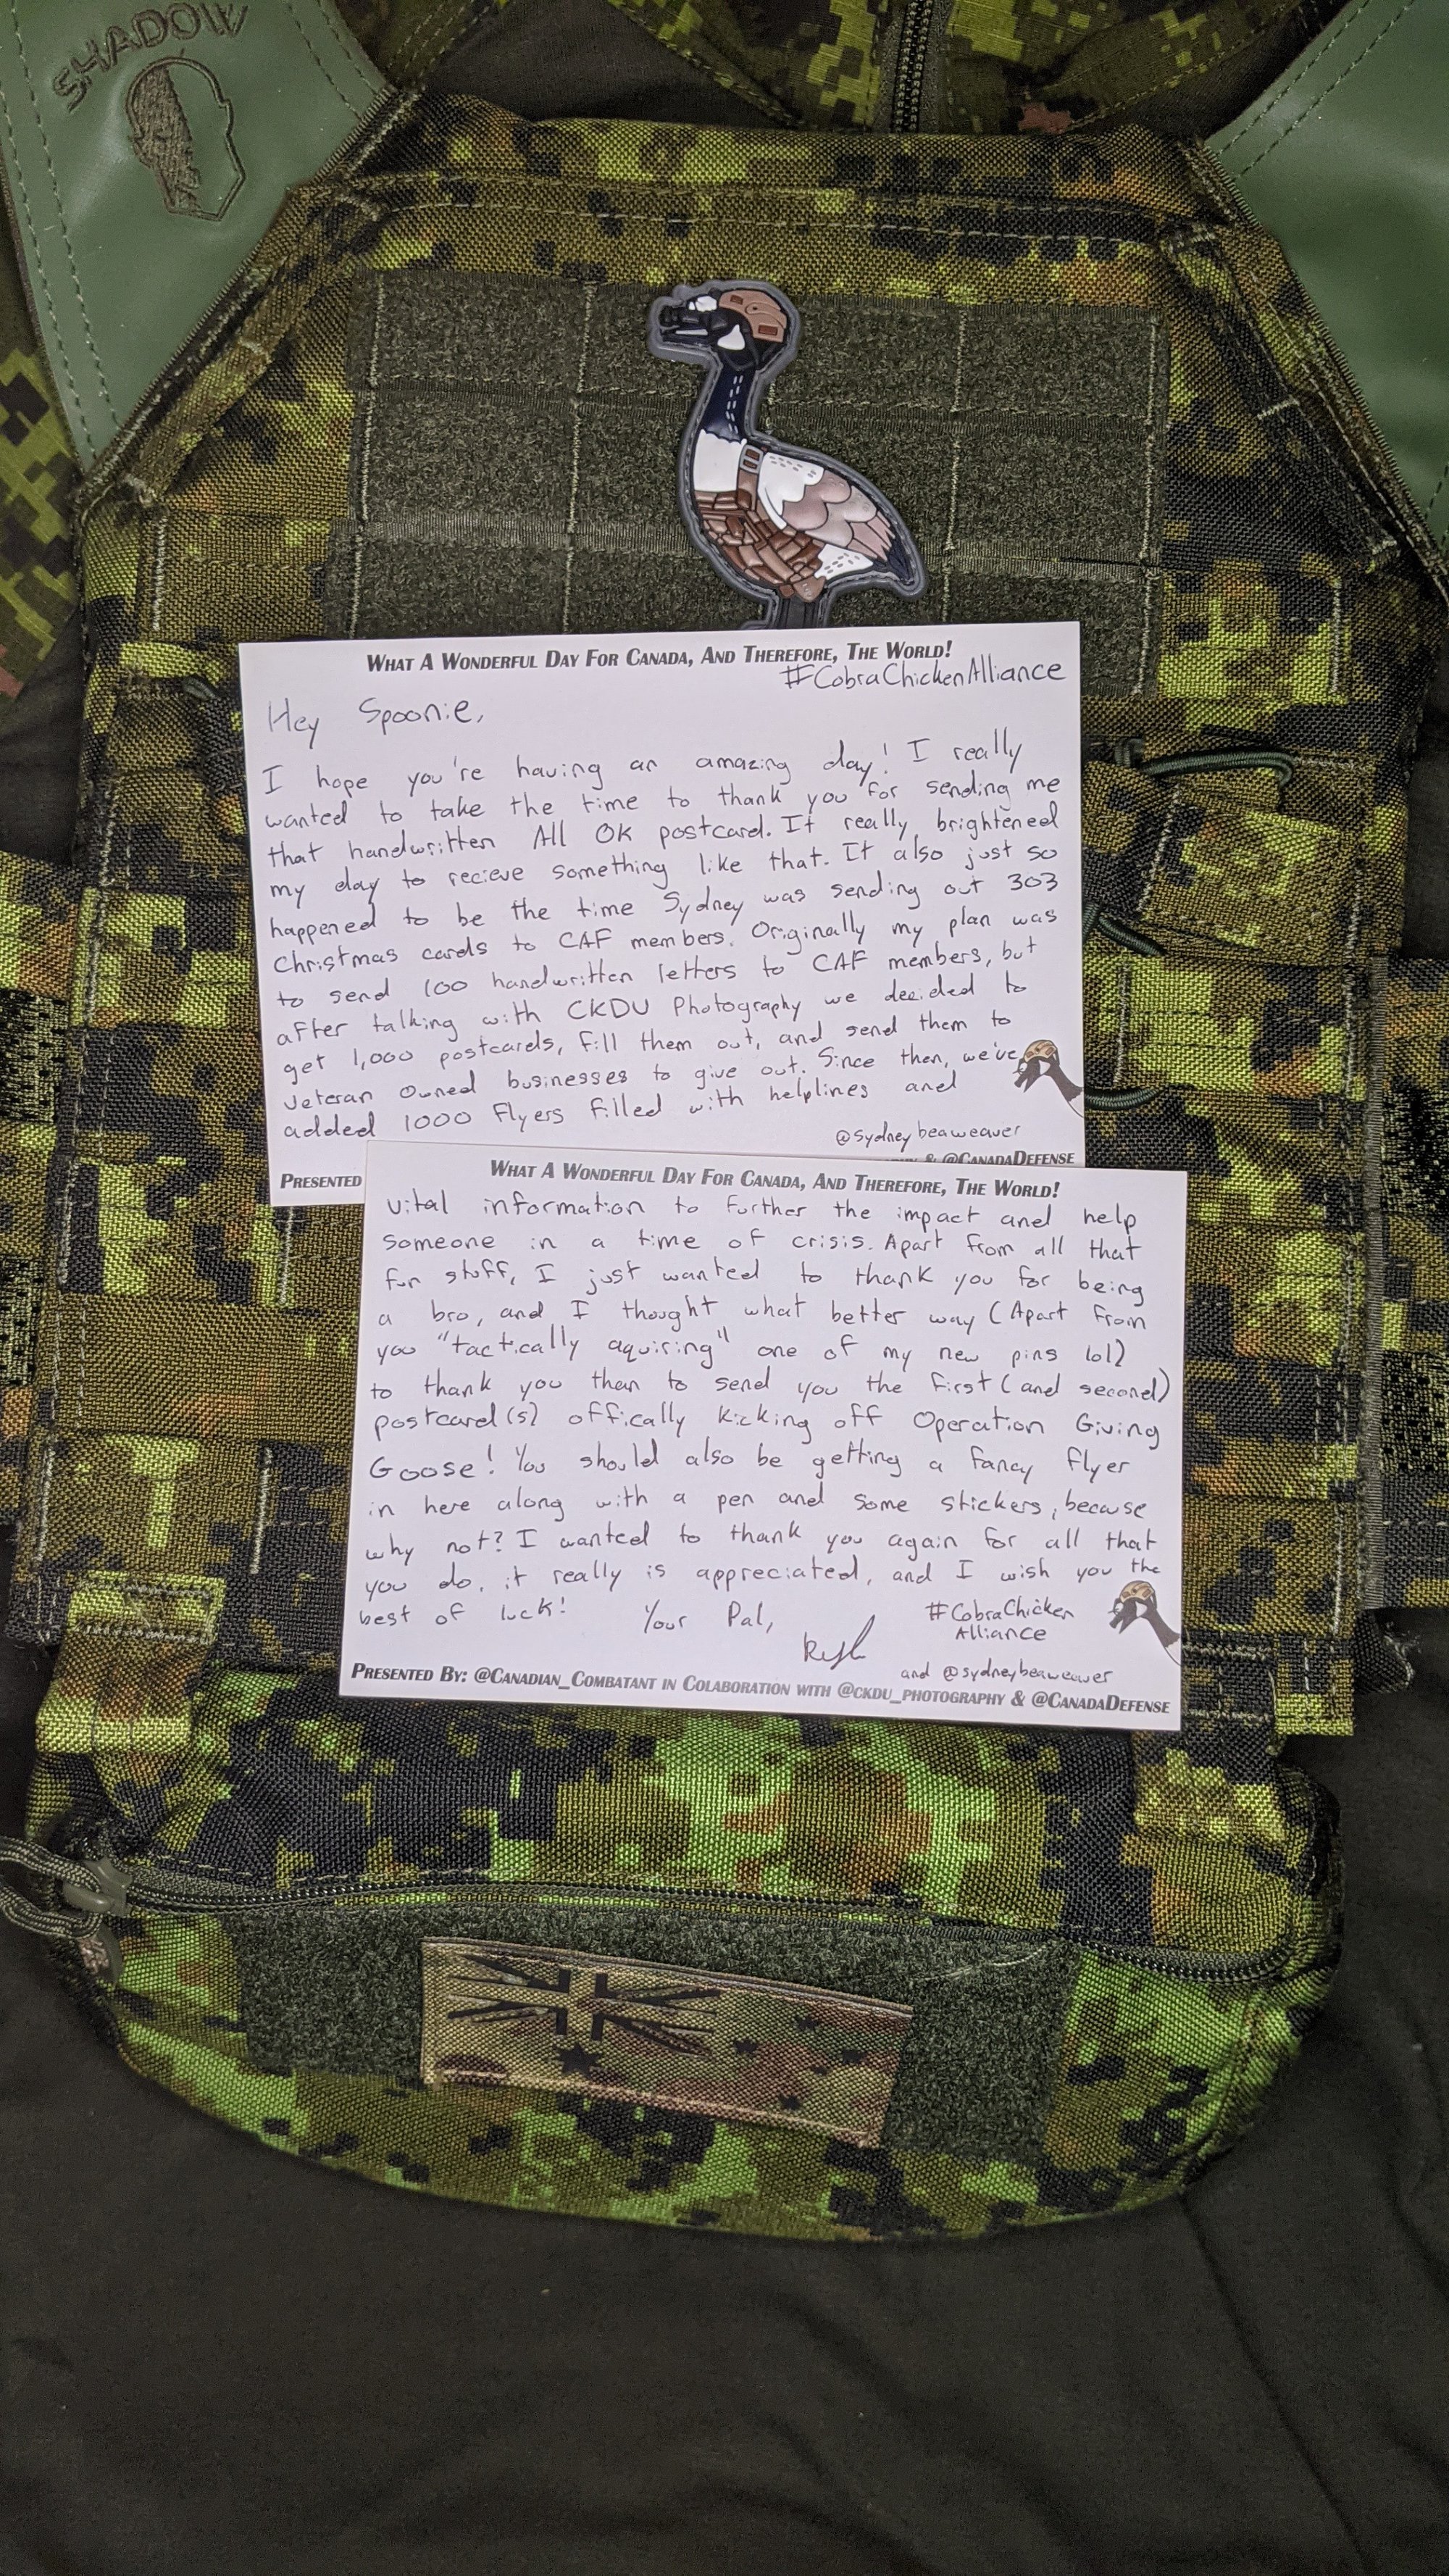 SHADOW
WHAT A WONDERFUL DAY FOR CANADA, AND THEREFORE, THE WORLD!
#CobraChickenAlliance
Hey Spoonie,
I hope you're having an amazing day! I really
wanted to take the time to thank you for sending me
that handwritten All OK postcard. It really brightened
my day to recieve something like that. It also just so
happened to be the time Sydney was sending out 303
Christmas cards to CAF members. Originally my plan was
to send 100 handwritten letters to CAF members, but
after talking with CKDU Photography we decided to
get 1,000 postcards, fill them out, and send them to
veteran owned businesses to give out. Since then, we've
added 1000 flyers filled with helplines and
@sydneybeaweaver
PRESENTED & @CANADADEFENSE
WHAT A WONDERFUL DAY FOR CANADA, AND THEREFORE, THE WORLD!
vital information to further the impact and help
someone in a time of crisis. Apart from all that
fun stuff, I just wanted to thank you for being
a bro, and I thought what better way (Apart from
you "tactically aquiring" one of my new pins lol)
to thank you than to send you the first (and second)
postcard(s) offically kicking off Operation Giving
Goose! You should also be getting a fancy flyer
in here along with a pen and some stickers, because
why not? I wanted to thank you again for all that
you do, it really is appreciated, and I wish you the
best of luck! Your Pal,
#CobraChicken
Alliance
and @sydneybeaweaver
PRESENTED BY: @CANADIAN_COMBATANT IN COLABORATION WITH @CKDU_PHOTOGRAPHY & @CANADADEFENSE